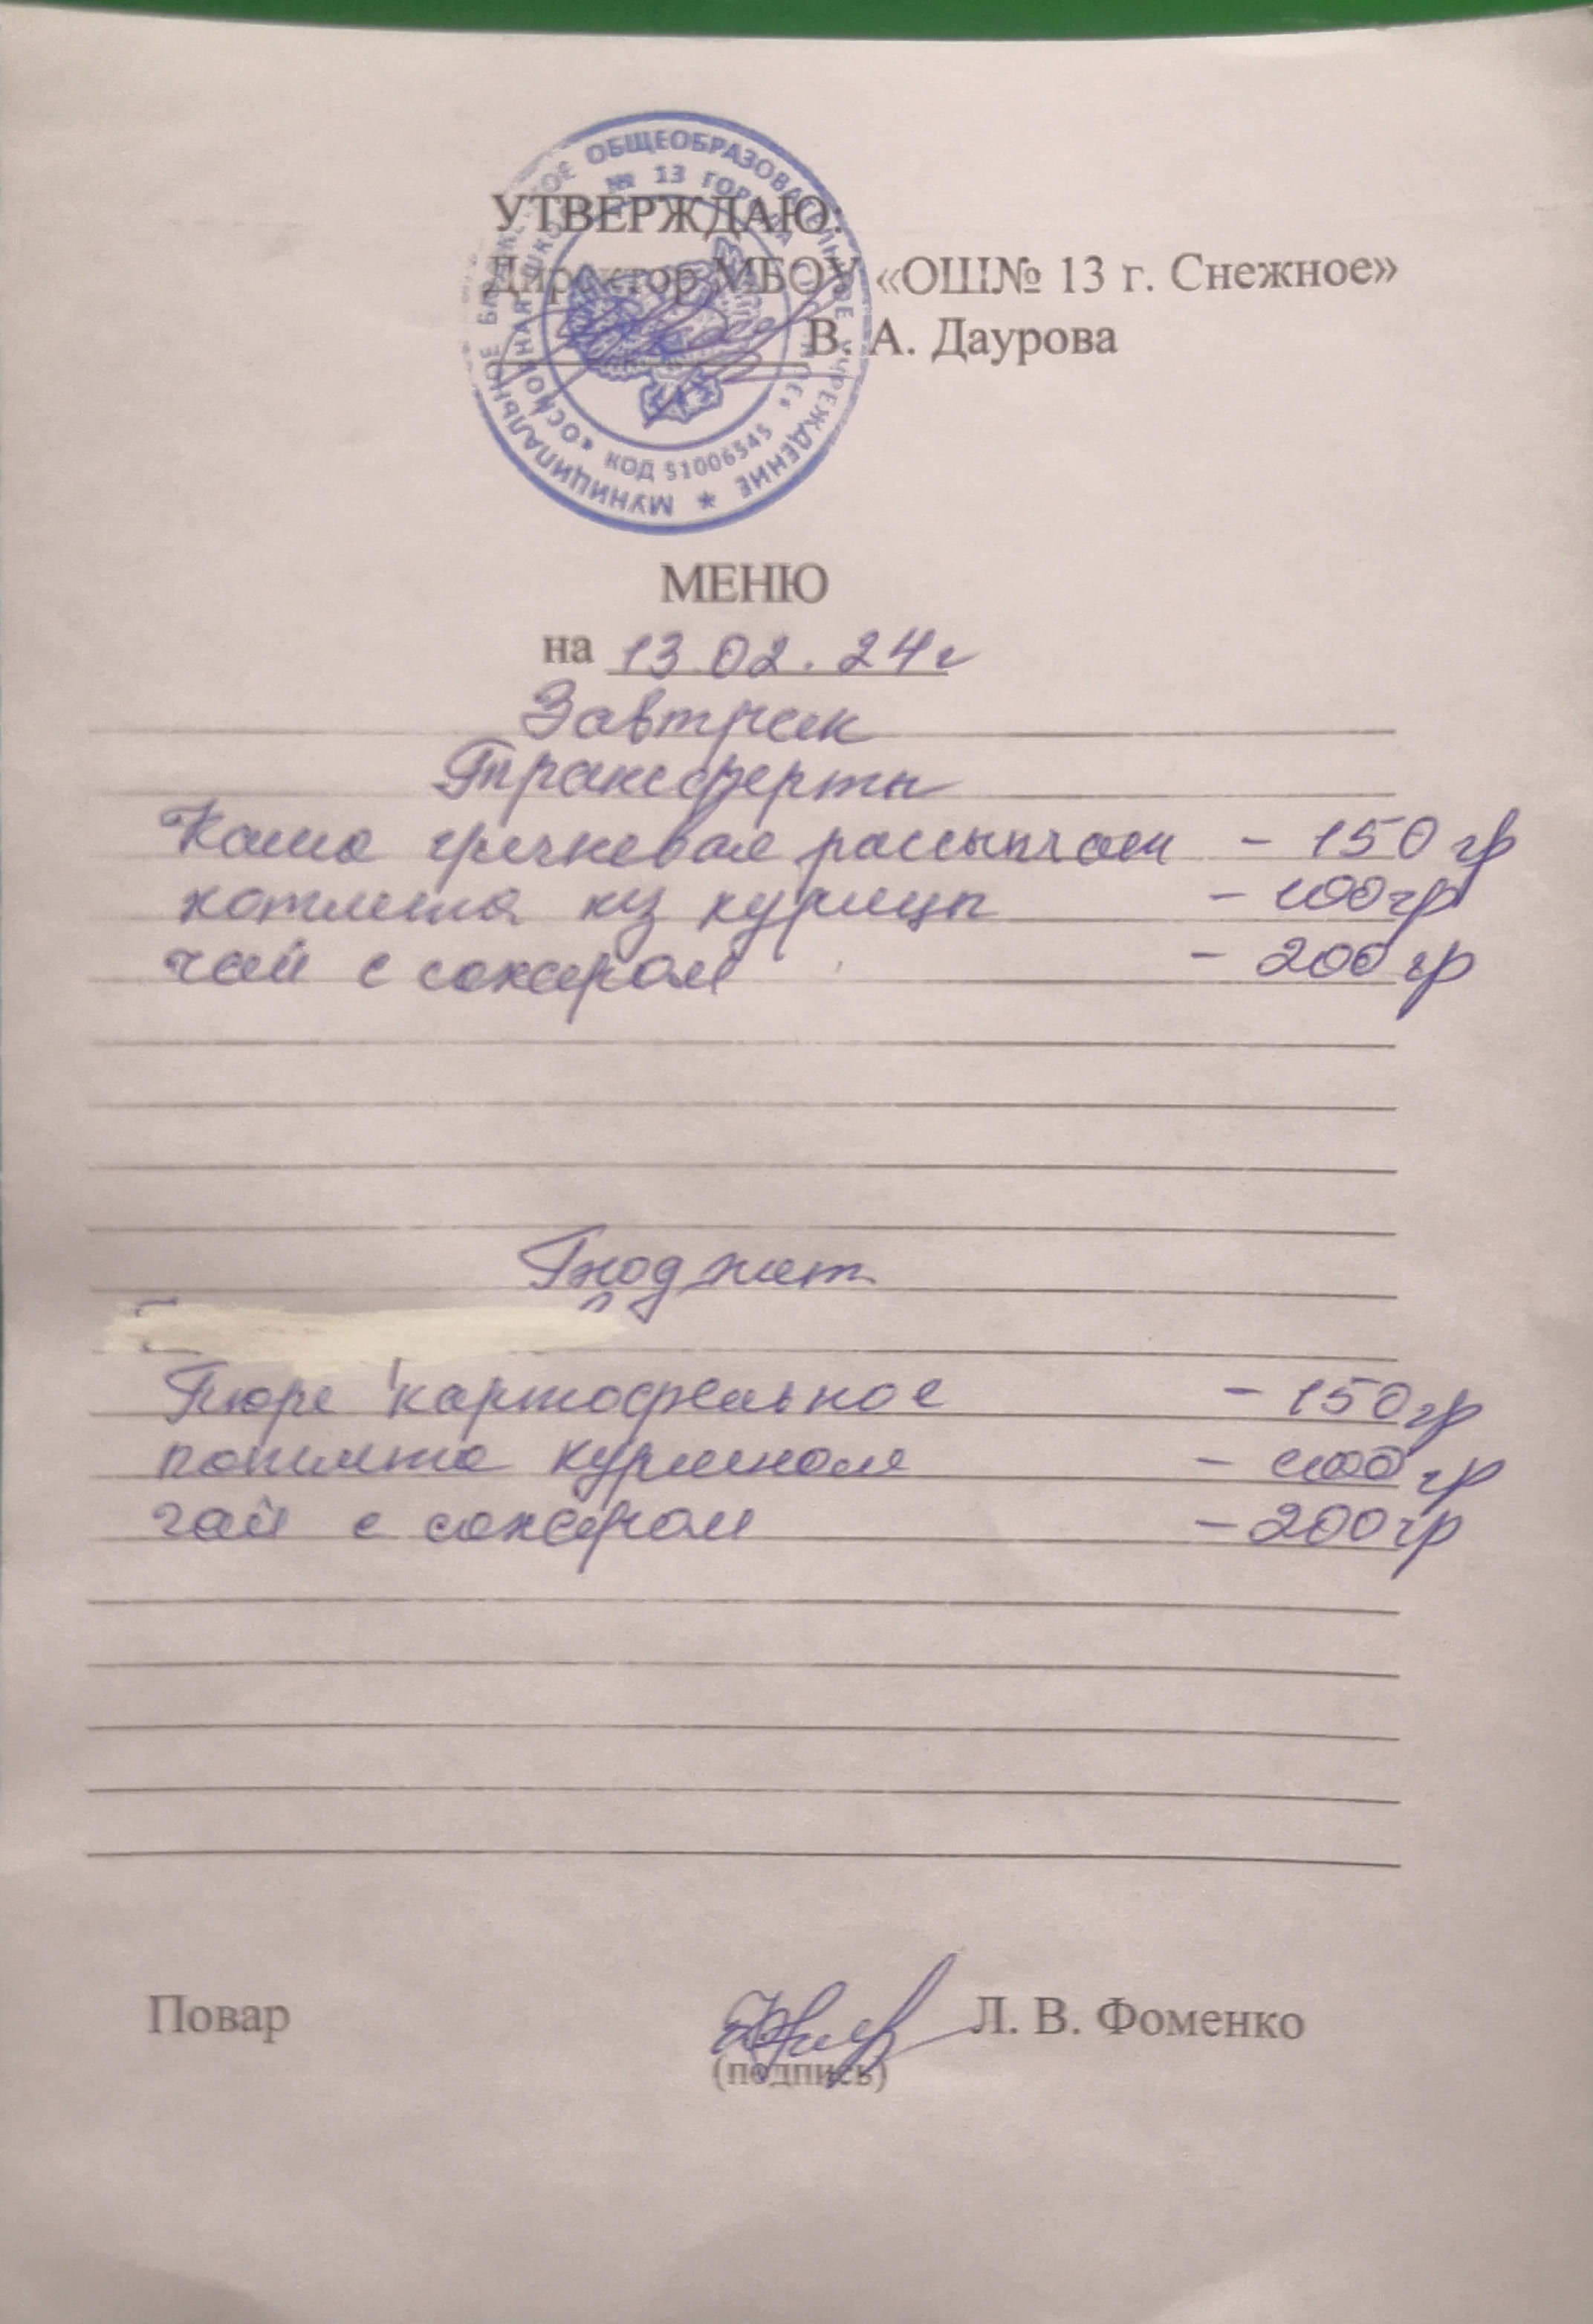 МУНИЦИПАЛЬНОЕ БЮДЖЕТНОЕ ОБЩЕОБРАЗОВАТЕЛЬНОЕ УЧРЕЖДЕНИЕ
«ОСНОВНАЯ ШКОЛА № 13 ГОРОДА
КОД 51006545
УТВЕРЖДАЮ:
Директор МБОУ «ОШ№ 13 г. Снежное»
В. А. Даурова
МЕНЮ
на 13.02.24г
Завтрак
Трансферты
Каша гречневая рассыпчат - 150 гр
котлета из курицы - 100 гр
чай с сахаром - 200 гр
Бюджет
Пюре картофельное - 150 гр
котлета куриная - 100 гр
чай с сахаром - 200 гр
Повар Л. В. Фоменко
(подпись)